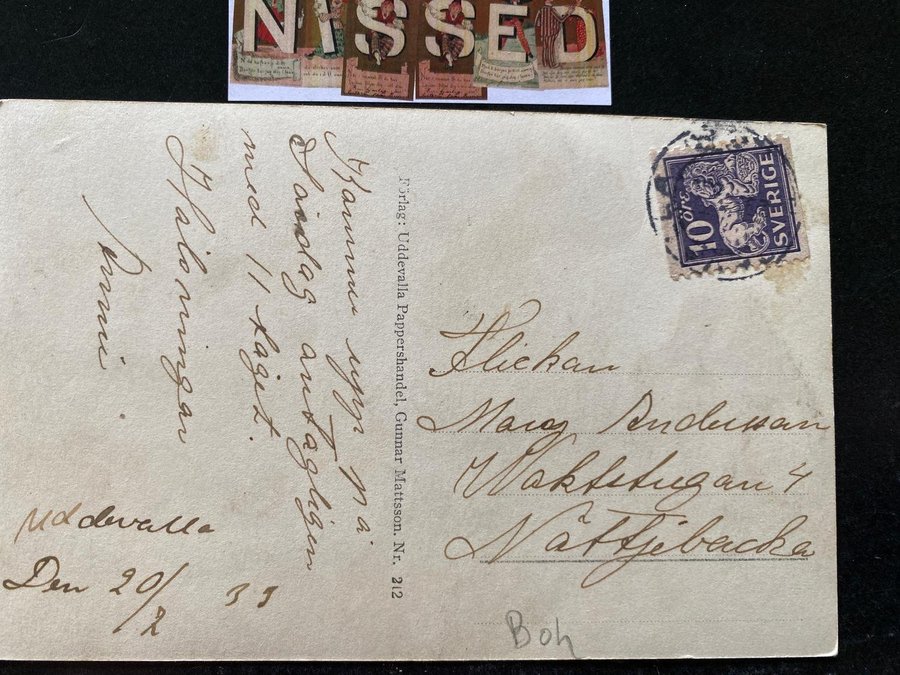 NISSED
Kommer upp på
Lördag antagligen
med 11 taget.
Hälsningar
Anni
Uddevalla
Den 20/2 33
Förlag: Uddevalla Pappershandel, Gunnar Mattsson. Nr. 212
10 ÖRE
SVERIGE
Flickan
Mary Andersson
Waktstugan 4
Nättjebacka
Boh